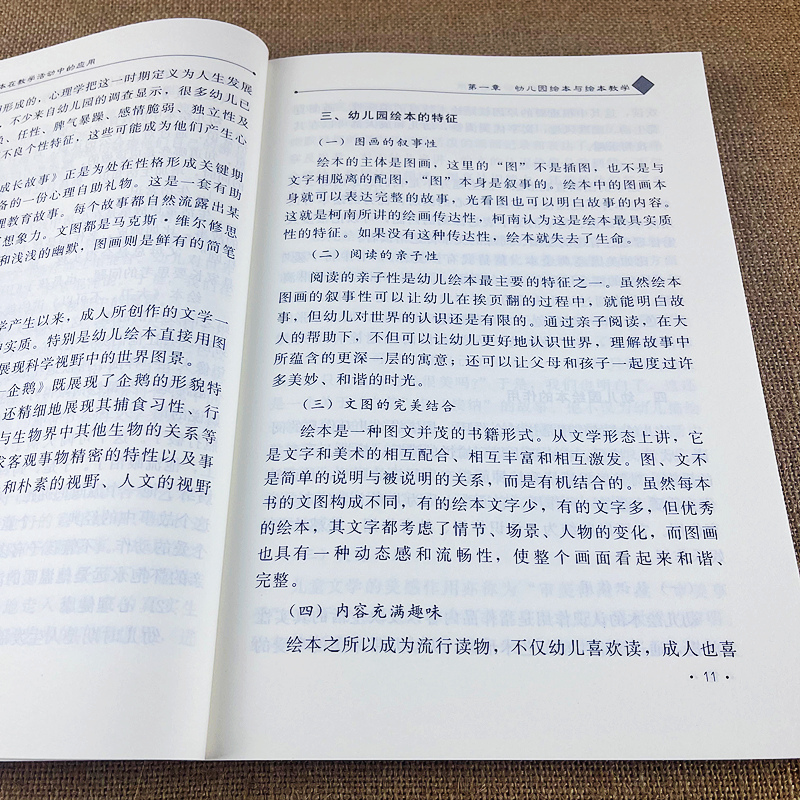 本在教学活动中的应用
形成的，心理学把这一时期定义为人生发展
，不少来自幼儿园的调查显示，很多幼儿已
、任性、脾气暴躁、感情脆弱、独立性及
不良个性特征，这些可能成为他们产生心
成长故事》正是为处在性格形成关键期
备的一份心理自助礼物。这是一套有助
理教育故事。每个故事都自然流露出某
想象力。文图都是马克斯·维尔修思
和浅浅的幽默，图画则是鲜有的简笔
学产生以来，成人所创作的文学一
中实质。特别是幼儿绘本直接用图
展现科学视野中的世界图景。
—企鹅》既展现了企鹅的形貌特
还精细地展现其捕食习性、行
与生物界中其他生物的关系等
求客观事物精密的特性以及事
和朴素的视野、人文的视野
第一章 幼儿园绘本与绘本教学
三、幼儿园绘本的特征
（一）图画的叙事性
绘本的主体是图画，这里的“图”不是插图，也不是与
文字相脱离的配图，“图”本身是叙事的。绘本中的图画本
身就可以表达完整的故事，光看图也可以明白故事的内容。
这就是柯南所讲的绘画传达性，柯南认为这是绘本最具实质
性的特征。如果没有这种传达性，绘本就失去了生命。
（二）阅读的亲子性
阅读的亲子性是幼儿绘本最主要的特征之一。虽然绘本
图画的叙事性可以让幼儿在挨页翻的过程中，就能明白故
事，但幼儿对世界的认识还是有限的。通过亲子阅读，在大
人的帮助下，不但可以让幼儿更好地认识世界，理解故事中
所蕴含的更深一层的寓意；还可以让父母和孩子一起度过许
多美妙、和谐的时光。
（三）文图的完美结合
绘本是一种图文并茂的书籍形式。从文学形态上讲，它
是文字和美术的相互配合、相互丰富和相互激发。图、文不
是简单的说明与被说明的关系，而是有机结合的。虽然每本
书的文图构成不同，有的绘本文字少，有的文字多，但优秀
的绘本，其文字都考虑了情节、场景、人物的变化，而图画
也具有一种动态感和流畅性，使整个画面看起来和谐、
完整。
（四）内容充满趣味
绘本之所以成为流行读物，不仅幼儿喜欢读，成人也喜
· 11 ·